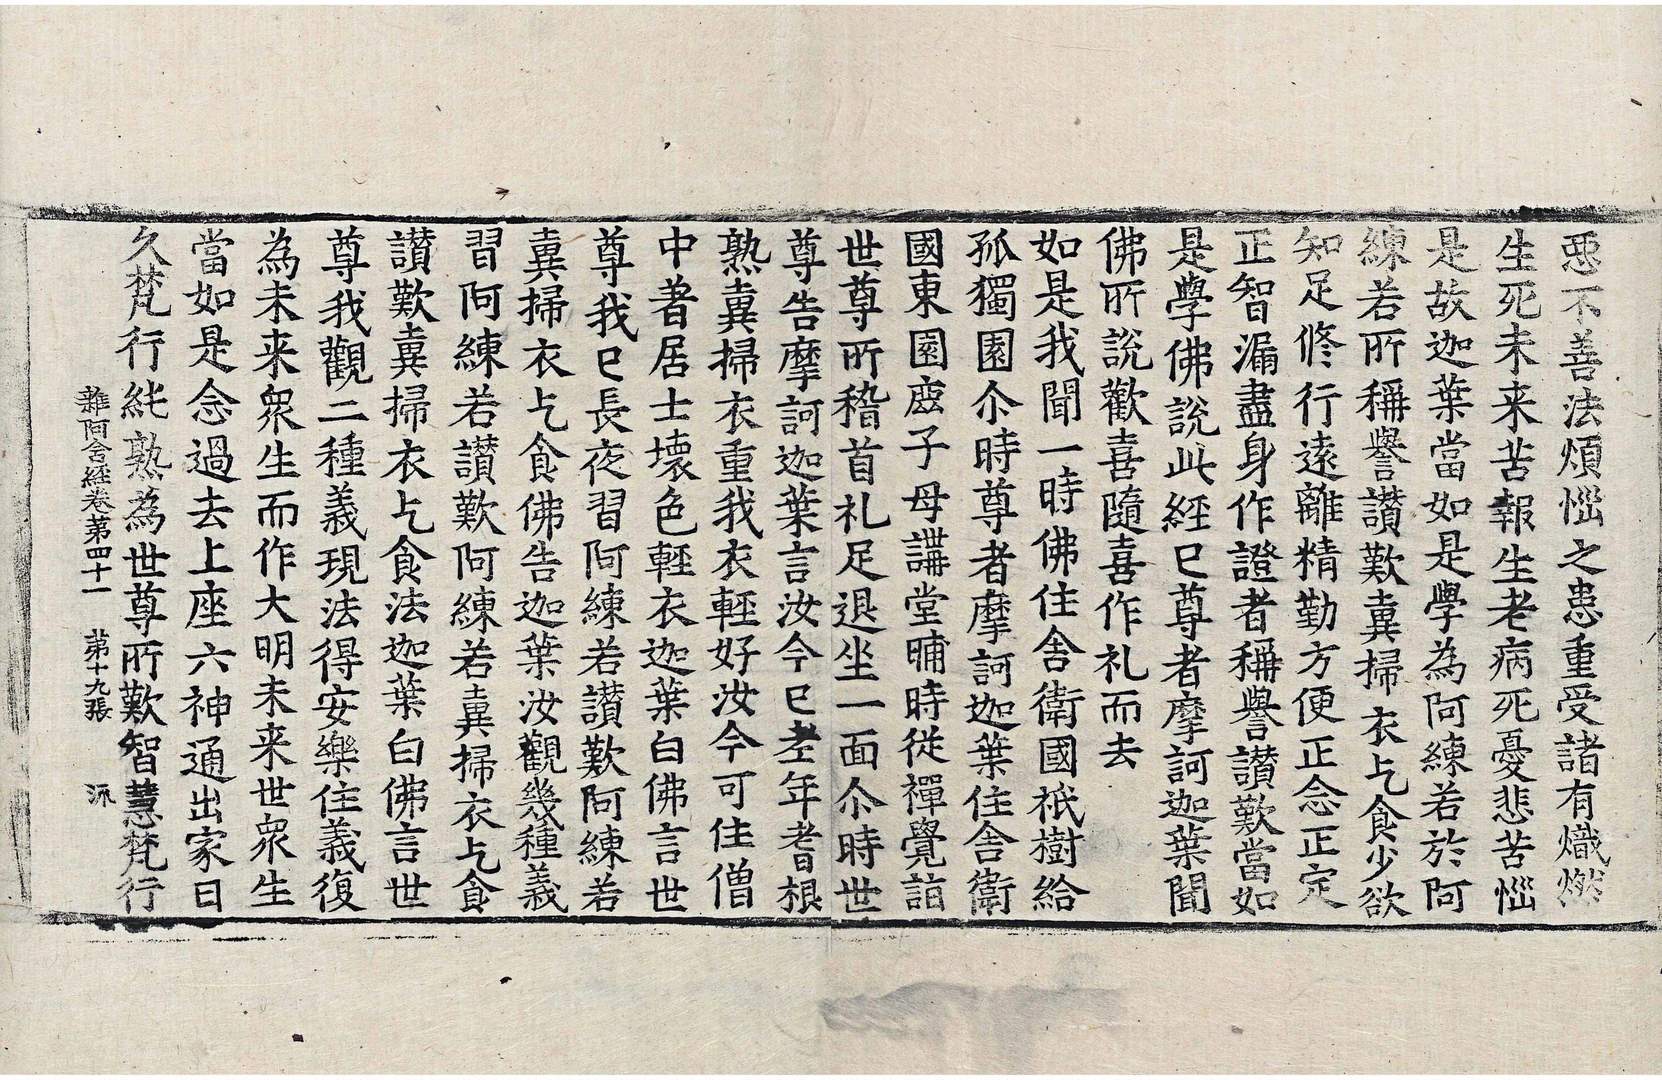 惡不善法煩惱之患重受諸有熾燃
生死未来苦報生老病死憂悲苦惱
是故迦葉當如是學為阿練若於阿
練若所稱譽讃歎糞掃衣乞食少欲
知足修行遠離精勤方便正念正定
正智漏盡身作證者稱譽讃歎當如
是學佛說此經已尊者摩訶迦葉聞
佛所說歡喜隨喜作礼而去
如是我聞一時佛住舍衛國祇樹給
孤獨園尒時尊者摩訶迦葉住舍衛
國東園鹿子母講堂晡時從禪覺詣
世尊所稽首礼足退坐一面尒時世
尊告摩訶迦葉言汝今已老年耆根
熟糞掃衣重我衣輕好汝今可住僧
中著居士壞色輕衣迦葉白佛言世
尊我已長夜習阿練若讃歎阿練若
糞掃衣乞食佛告迦葉汝觀幾種義
習阿練若讃歎阿練若糞掃衣乞食
讃歎糞掃衣乞食法迦葉白佛言世
尊我觀二種義現法得安樂住義復
為未来衆生而作大明未来世衆生
當如是念過去上座六神通出家日
久梵行純熟為世尊所歎智慧梵行
雜阿含經卷第四十一 第十九張 泝